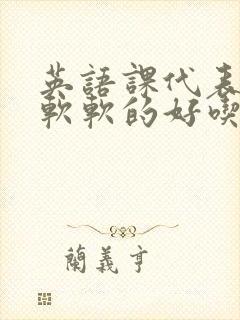 英語課代表
軟軟的好喫
蘭義亨